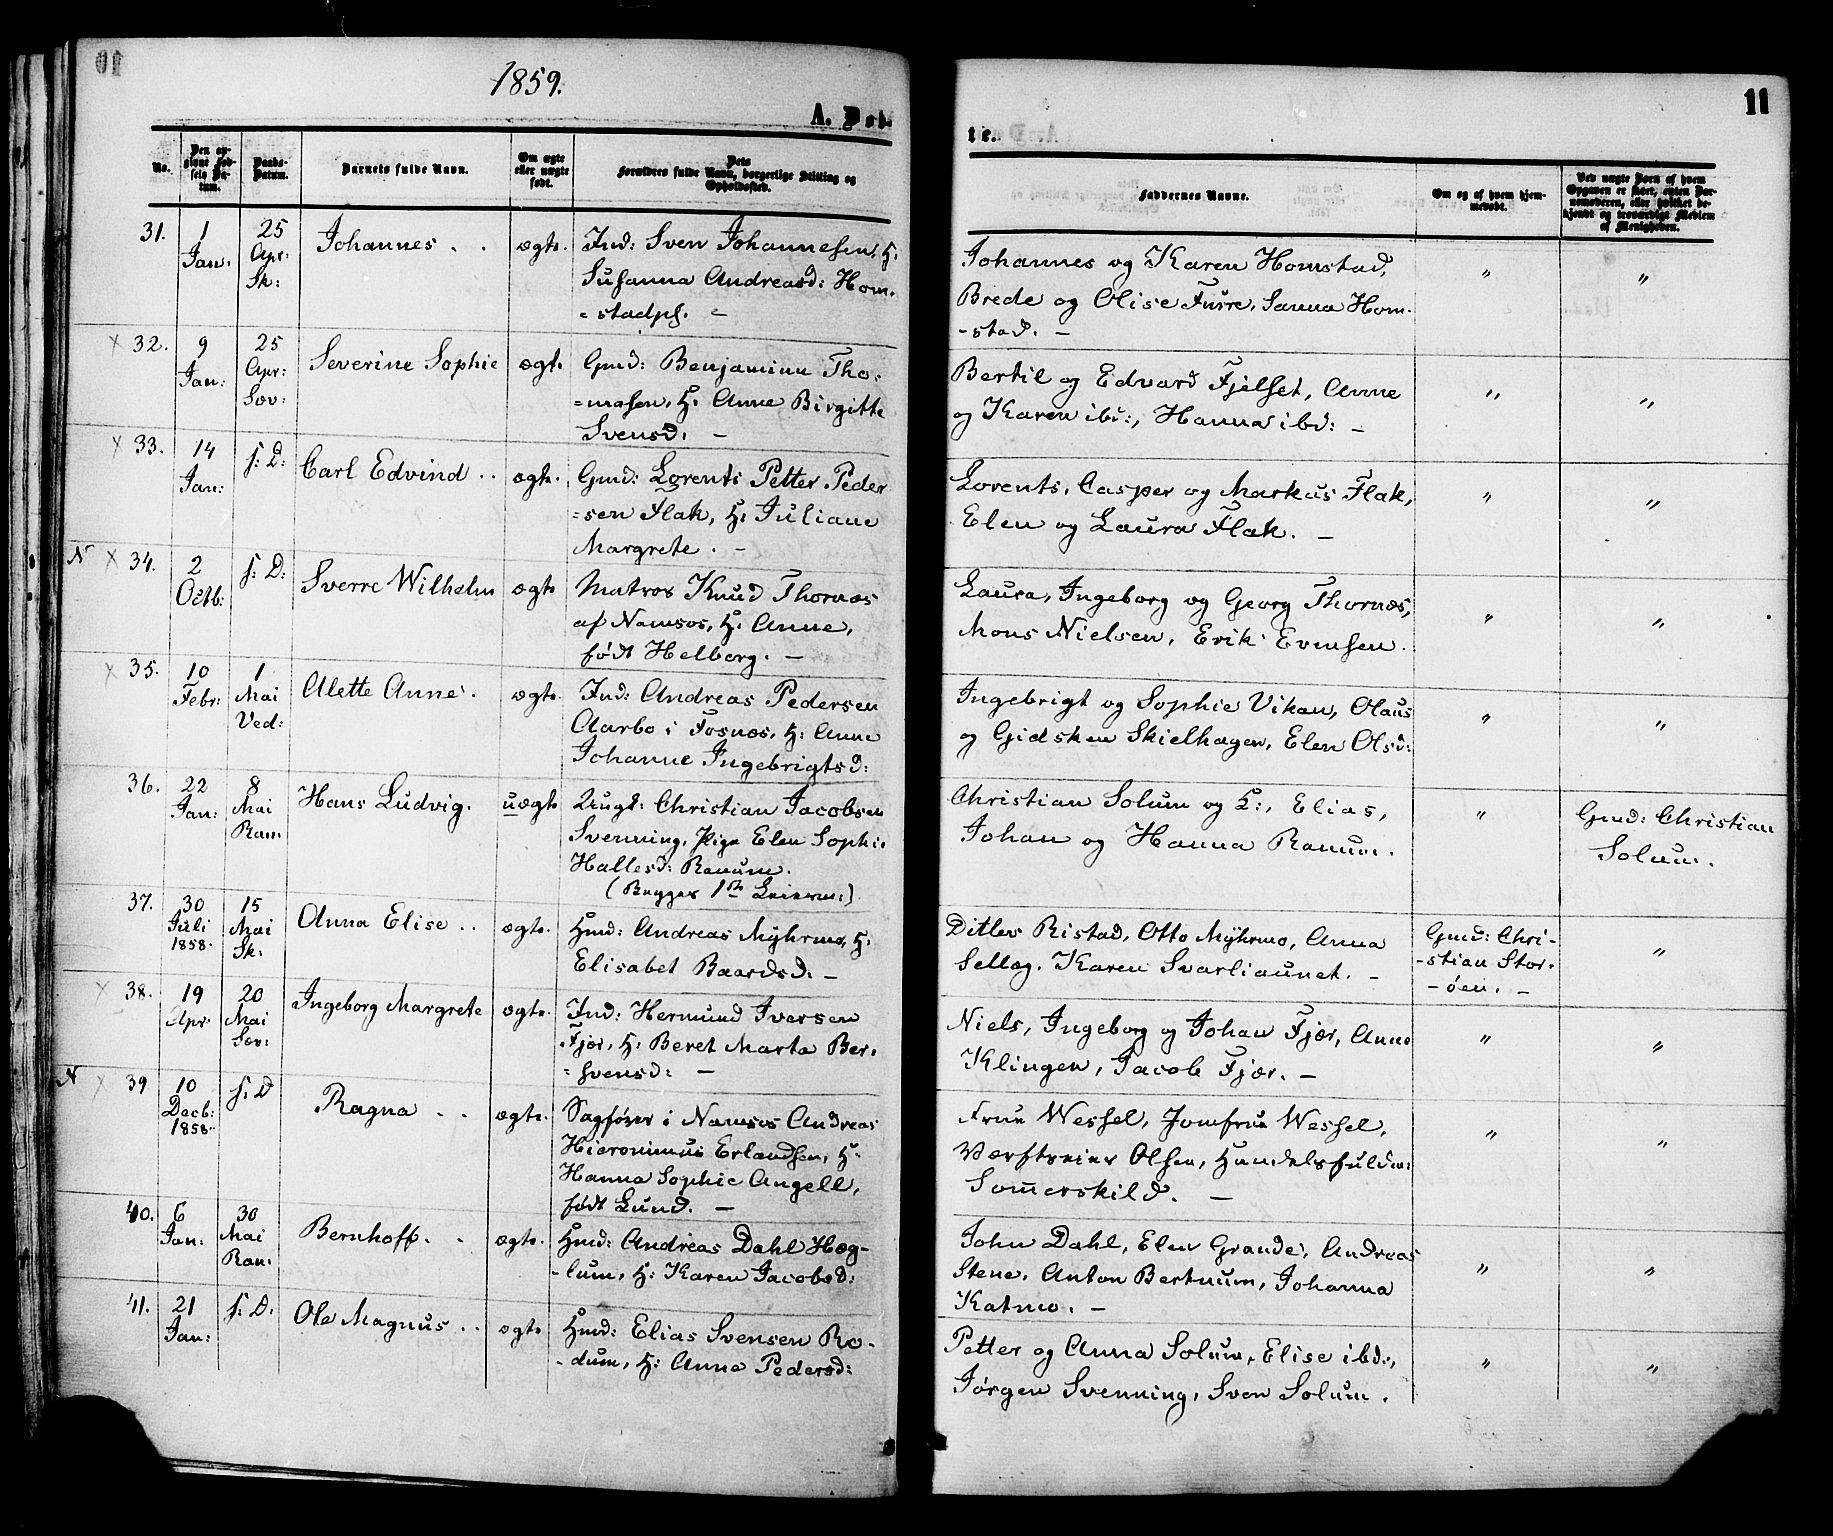 10
1859.
A. Døb-
No.
Den opgivne Fødsels Datum.
Daabs-Datum.
Barnets fulde Navn.
Om ægte eller uægte født.
Dets Forældres fulde Navn, borgerlige Stilling og Opholdssted.
31.
1
Jan.
25
Apr:
Sk:
Johannes . .
ægte.
Ind: Sven Johannesen, H:
Susanna Andreasd: Hom-
-stadpl. -
32.
9
Jan:
25
Apr:
Sæv:
Severine Sophie
ægt.
Gmd: Benjaminn Tho-
=masen, H: Anne Birgitte
Svensd: -
33.
14
Jan:
f: D:
Carl Edvind . .
ægte.
Gmd: Lorents Petter Peder
=sen Flak, H: Juliane
Margrete. -
N
34.
2
Octb:
f: D:
Sverre Wilhelm
ægte
Matros Knud Thornæs
af Namsos, H: Anne,
født Helborg. -
35.
10
Febr:
1
Mai
Ved:
Alette Anne.
ægte.
Ind: Andreas Pedersen
Aarbo i Fosnæs, H: Anne
Johanne Ingebrigtsd:
36.
22
Jan:
8
Mai
Ran:
Hans Ludvig.
uægte
Ungk: Christian Jacobsen
Svenning, Pige Elen Sophie
Hallesd: Ranum.
(Begges 1ste Leierm:)
37.
30
Juli
1858.
15
Mai
Sk:
Anna Elise . .
ægte.
Hmd: Andreas Myhrmo, H:
Elisabet Baardsd: -
38.
19
Apr:
20
Mai
Sæv:
Ingeborg Margrete
ægte.
Ind: Hermund Iversen
Fjær, H: Beret Marta Ber-
=svensd: -
N
39
10
Decb:
1858.
f: D
Ragna . .
ægte.
Sagfører i Namsos Andreas
Hieronimus Erlandsen, H:
Hanna Sophie Angell,
født Lund. -
40.
6
Jan:
30
Mai
Ran:
Bernhoff. .
ægte.
Hmd: Andreas Dahl Hæg-
-lum, H: Karen Jacobsd:
41.
21
Jan:
f: D:
Ole Magnus . .
ægte
Hmd: Elias Svensen Ro-
-dum, H: Anne Pedersd:
11
te.
Faddernes Navne.
Om og af hvem hjemmedøbt.
Ved uægte Børn af hvem Opgaven er skeet, enten Barnemoderen, eller hvilket bekjendt og troværdigt Medlem af Menigheden.
Johannes og Karen Homstad,
Brede og Olise Furre, Sanna Hom-
-stad. -
"
"
Bertil og Edvard Fjelset, Anne
og Karen ibd:, Hanna ibd: -
"
"
Lorents, Casper og Markus Flak,
Elen og Laura Flak. -
"
"
Laura, Ingeborg og Georg Thornæs,
Mons Nielsen, Erik Evensen.
"
"
Ingebrigt og Sophie Vikan, Olaus
og Gidsken Skielhagen, Elen Olsd:
"
"
Christian Solum og K:, Elias,
Johan og Hanna Ranum.
"
Gmd: Christian
Solum.
Ditlev Ristad, Otto Myhrmo, Anna
Sellæg, Karen Svarliaunet. -
Gmd: Chri-
-stian Stor-
-øen. -
"
Niels, Ingeborg og Johan Fjær, Anne
Klingen, Jacob Fjær. -
"
"
Frue Wessel, Jomfrue Wessel,
Værftseier Olsen, Handelsfuldm:
Sommerskild. -
"
"
John Dahl, Elen Grande, Andreas
Stene, Anton Bertnum, Johanna
Katmo. -
"
"
Petter og Anna Solum, Elise ibd:,
Jørgen Svenning, Sven Solum.
"
"